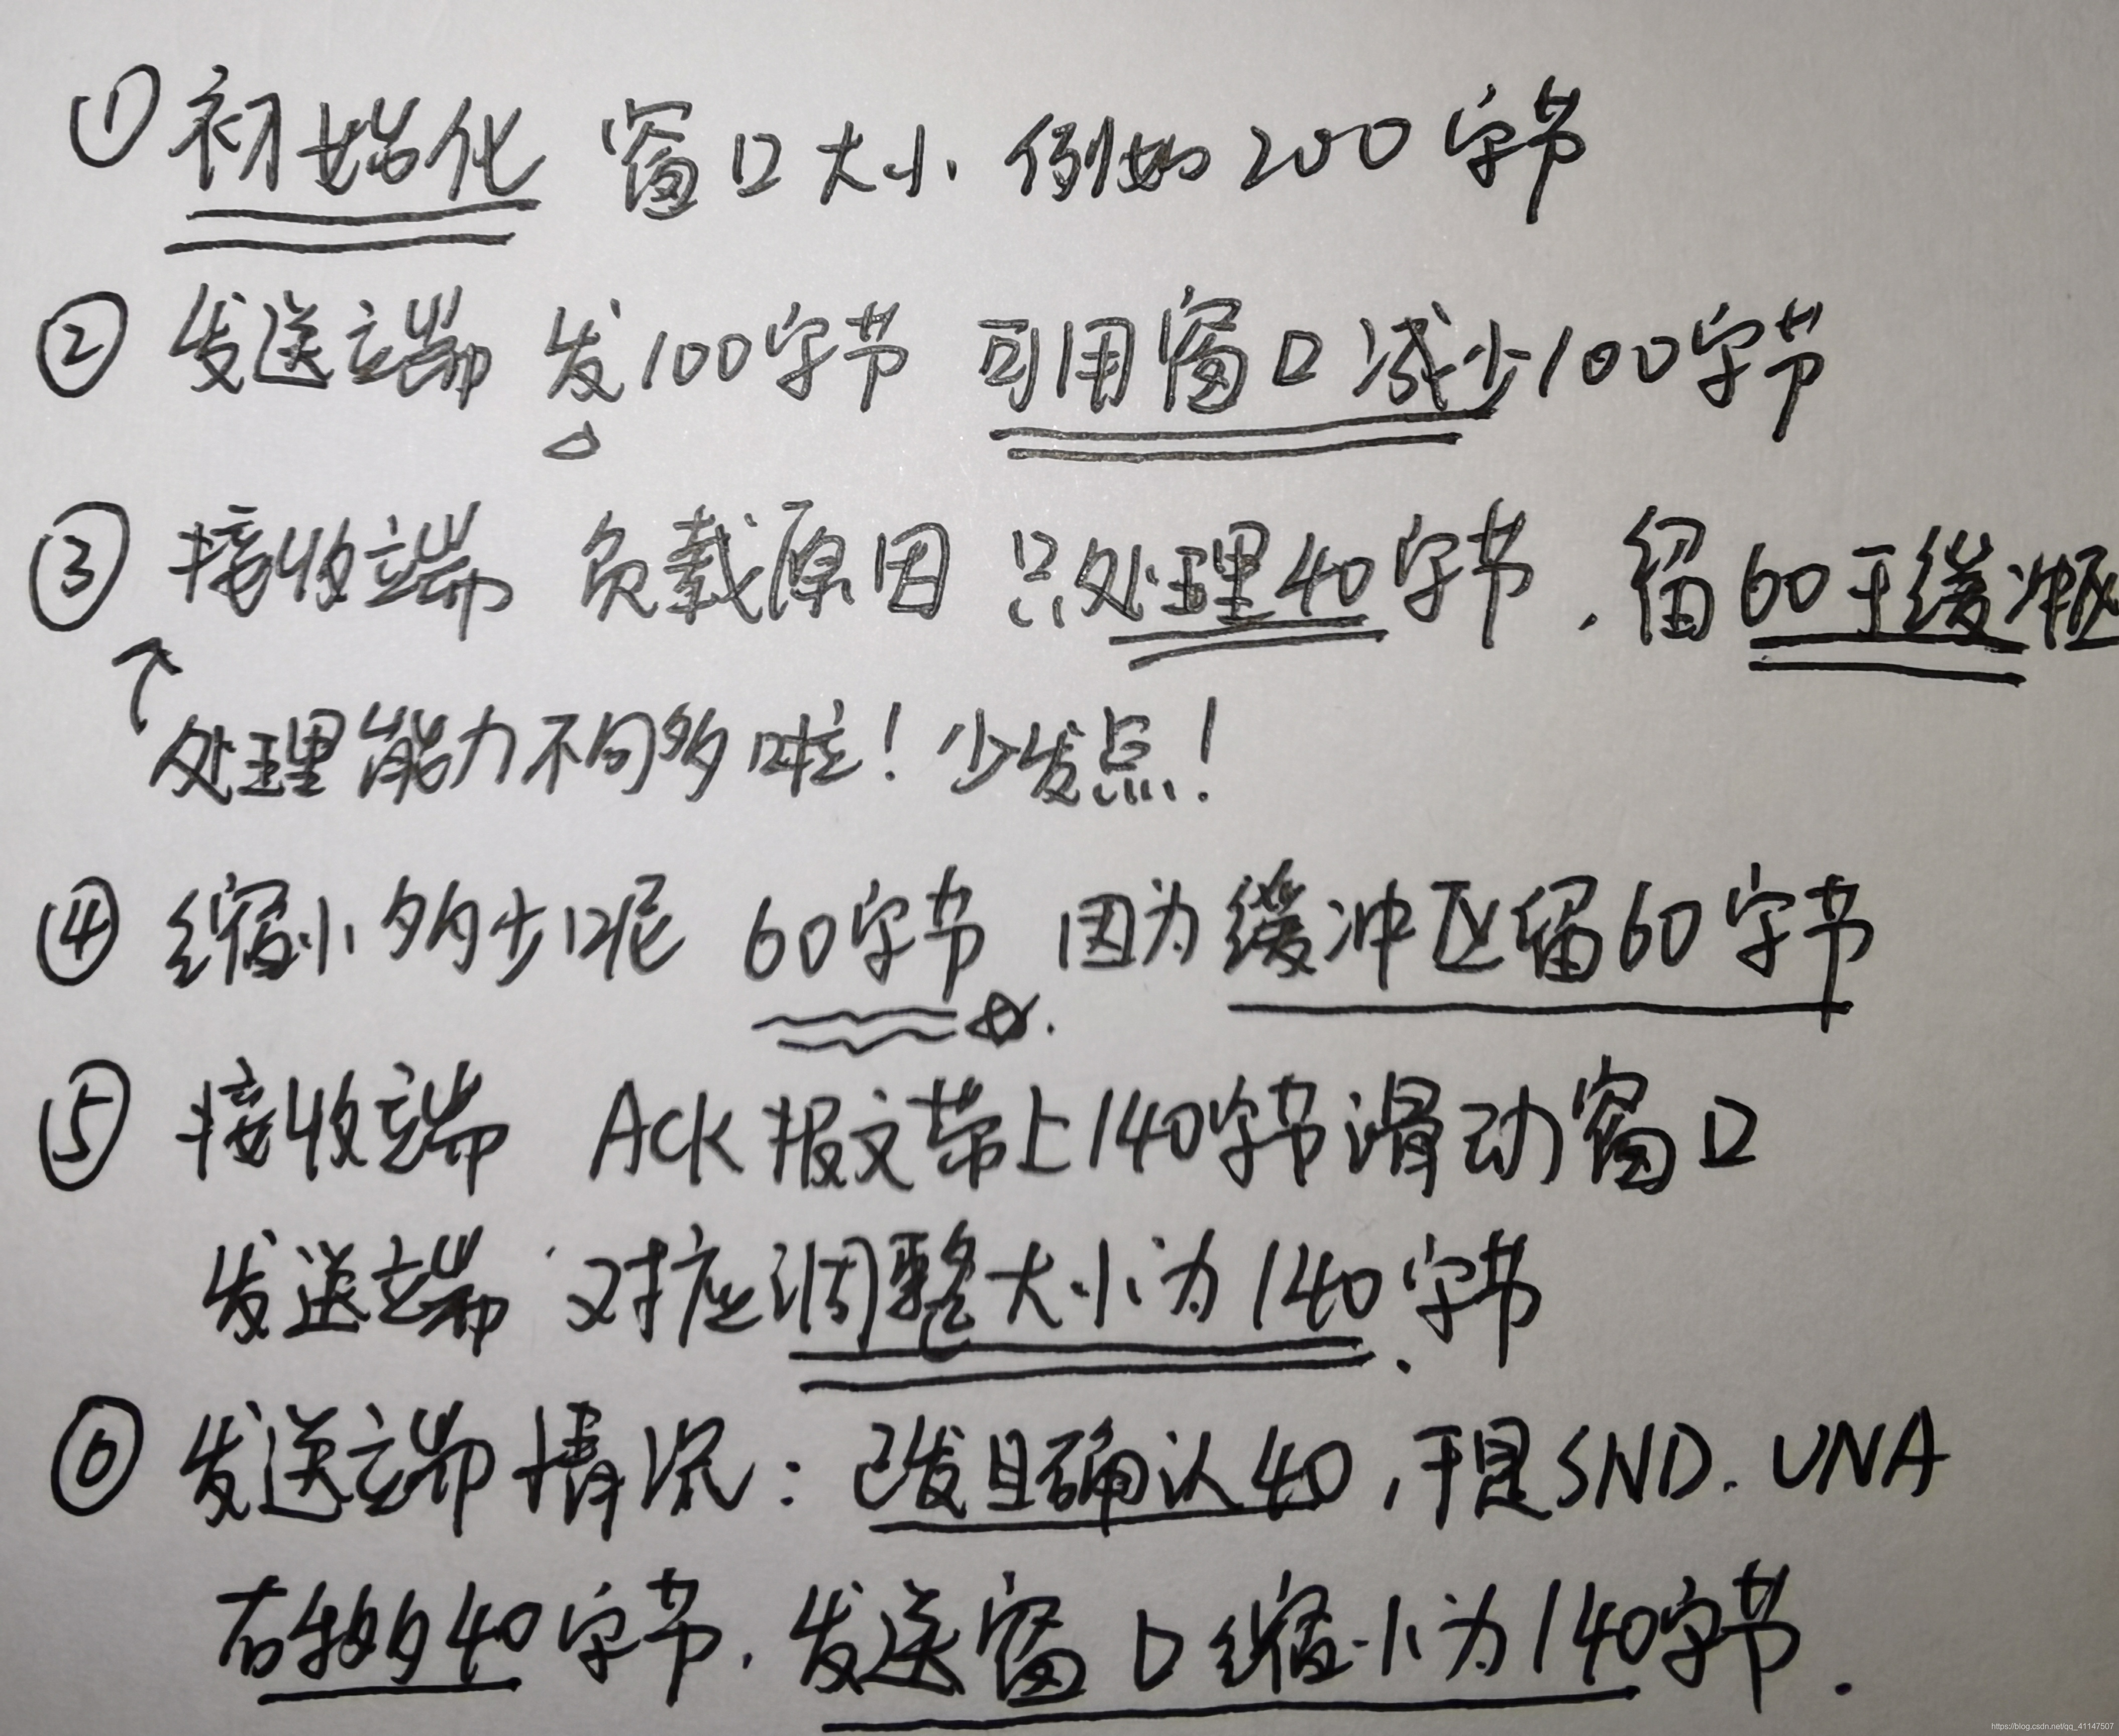 ① 初始化 窗口大小. 例如200字节
② 发送端 发100字节 可用窗口减少100字节
③ 接收端 负载原因 只处理40字节. 留60于缓冲区
处理能力不句多啦! 少发点!
④ 缩小多少呢 60字节 因为缓冲区留60字节
⑤ 接收端 ACK报文带上140字节滑动窗口
发送端 对应调整大小为140字节
⑥ 发送端情况: 已发且确认40, 于是SND. UNA
右移40字节. 发送窗口缩小为140字节.
https://blog.csdn.net/qq_41147507